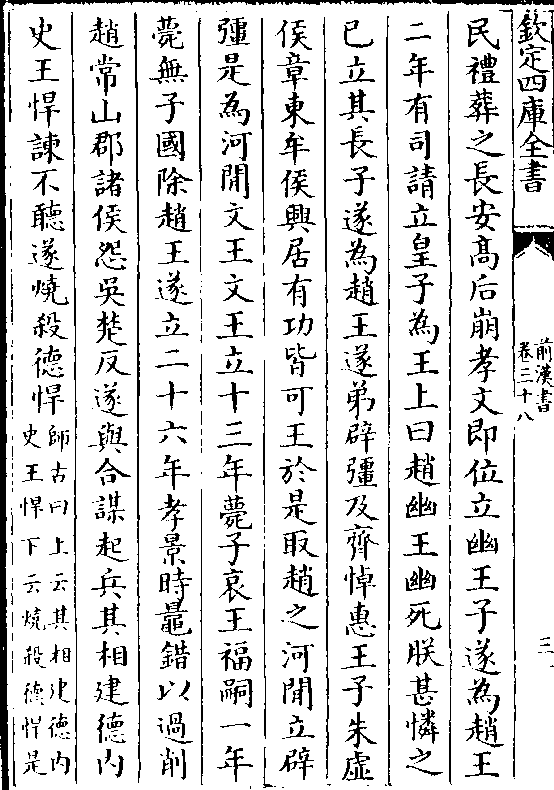 欽定四庫全書
前漢書
卷三十八
三
民禮葬之長安髙后崩孝文即位立幽王子遂為趙王
二年有司請立皇子為王上曰趙幽王幽死朕甚憐之
已立其長子遂為趙王遂弟辟彊及齊悼惠王子朱虛
侯章東牟侯興居有功皆可王於是取趙之河間立辟
彊是為河間文王文王立十三年薨子哀王福嗣一年
薨無子國除趙王遂立二十六年孝景時鼂錯以過削
趙常山郡諸侯怨吳楚反遂與合謀起兵其相建德内
史王悍諫不聽遂燒殺德悍
師古曰上云其相建德内
史王悍下云燒殺德悍是